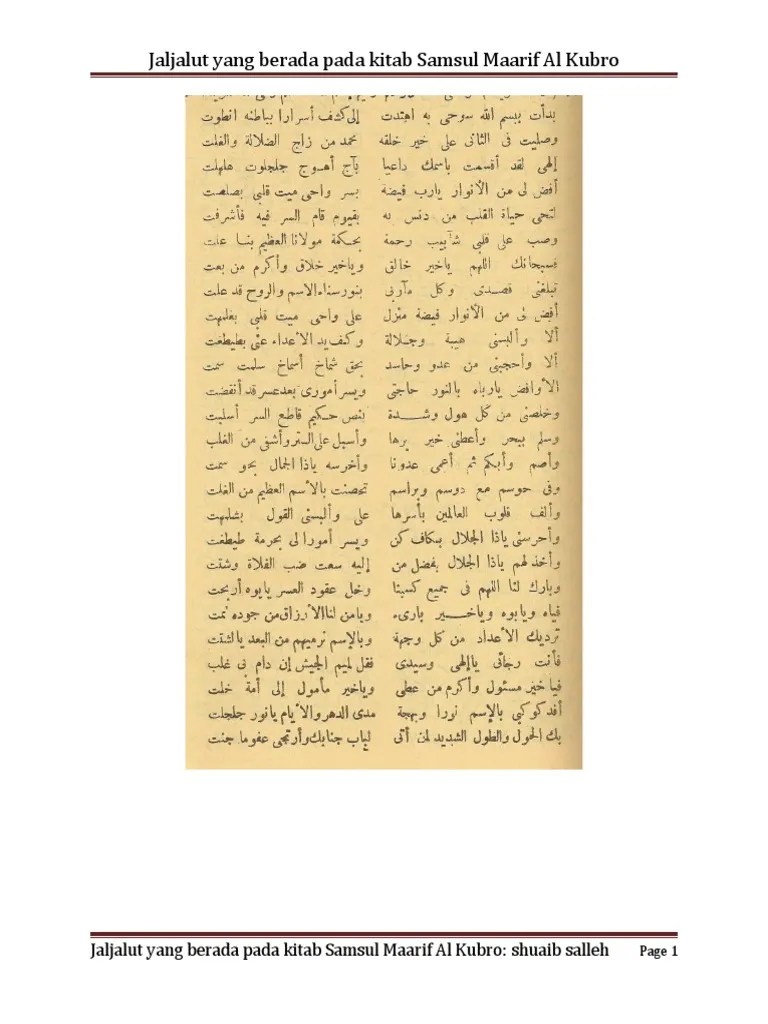 Jaljalut yang berada pada kitab Samsul Maarif Al Kubro
بدأت ببسم الله روحى به اهتدت إلى كشف أسرارا بباطنه انطوت
وصليت فى الثانى على خير خلقه محمد من زاح الضلالة والغلت
إلهى لقد أقسمت باسمك داعيا بآج أهوج جلجلوت هلهلت
أفض لى من الأنوار يارب فيضة بسر واحى ميت قلبى بصلصت
لتحى حياة القلب من دنس به بقيوم قام السر فيه فأشرقت
وصب على قلبى شآبيب رحمة بحكمة مولانا العظيم بنا علت
فسبحانك اللهم ياخير خالق وياخير خلاق وأكرم من بعت
تبلغنى قصدى وكل مآربى بنور سناء الاسم والروح قد علت
أفض لى من الأنوار فيضة منزل على واحى ميت قلبى بغلمهت
ألا وألبسنى هيبة وجلالة وكف يد الأعداء عنى بطيطغت
ألا وأحجبنى من عدو وحاسد بحق شماخ أسماخ سلمت سمت
الأوافض يارباه بالنور حاجتى ويسر أمورى بعد عسر قد أنقضت
وخلصنى من كل هول وشدة بنص حكيم قاطع السر أسبلت
وسلم ببحر وأعطنى خير برها وأسبل على الستر وأشفى من الغلب
وأصم وأبكم ثم أعمى عدونا وأخرسه ياذا الجمال بحو سمت
وفى حوسم مع دوسم وبراسم تحصنت بالأسم العظيم من الغلت
وألف قلوب العالمين بأسرها على وألبسنى القول بشلمهت
وأحرسنى ياذا الجلال بكاف كن ويسر أمورا لى بحرمة طيطغت
وأخذلهم ياذا الجلال بفضل من إليه سعت ضب الفلاة وشتت
وبارك لنا اللهم فى جميع كسبنا وحل عقود العسر يايوه أربحت
فياه ويايوه وياخير بارىء ويامن لنا الأرزاق من جوده نمت
ترديك الأعداد من كل وجهة وبالإسم ترميهم من البعد يالشتت
فأنت رجائى ياإلهى وسيدى فقل لميم الجيش إن دام بى غلب
فيا خير مسئول وأكرم من عطى وياخير مأمول إلى أمة خلت
أقد كوكبى بالإسم نورا وبهجة مدى الدهر والأيام يانور جلجلت
بك الحول والطول الشديد لمن أتى لباب جنابك وأرتجى عفوما جنت
Jaljalut yang berada pada kitab Samsul Maarif Al Kubro: shuaib salleh Page 1